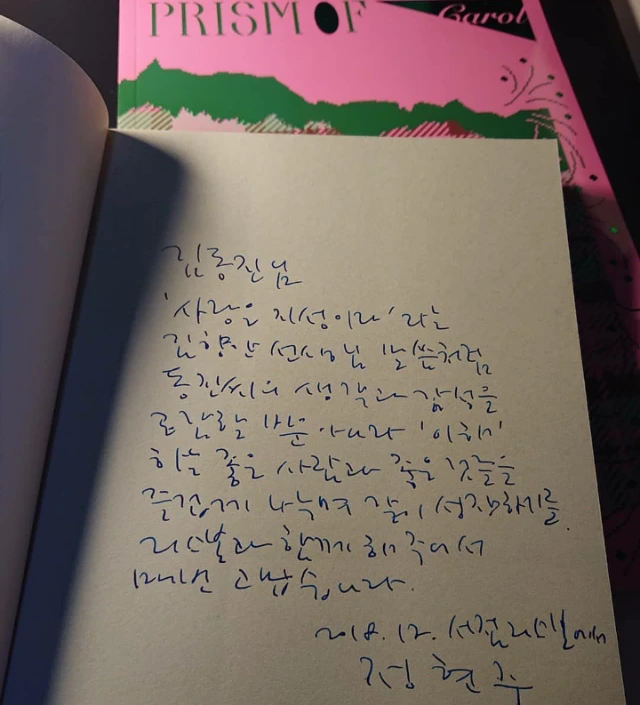 PRISM OF
Carol
김동진님
'사랑은 지성이다' 라는
김향안 선생님 말씀처럼
동진씨의 생각과 감성을
공감할 뿐 아니라 '이해'
하는 좋은 사람과 좋은 것들을
즐겁게 나누며 같이 성장하기를.
리스본과 함께 해 주어서
매번 고맙습니다.
2018. 12. 서점 리스본에서
정현주